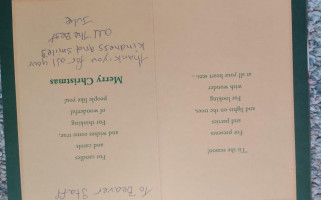 'Tis the season!
For presents
and parties
and lights on the trees,
For looking
with wonder
at all your heart sees...
To Deaver Staff
For candles
and carols
and wishes come true,
For thinking
of wonderful
people like you!
Merry Christmas
Thank-you for all your
kindness and smiles
All The Best
Julie